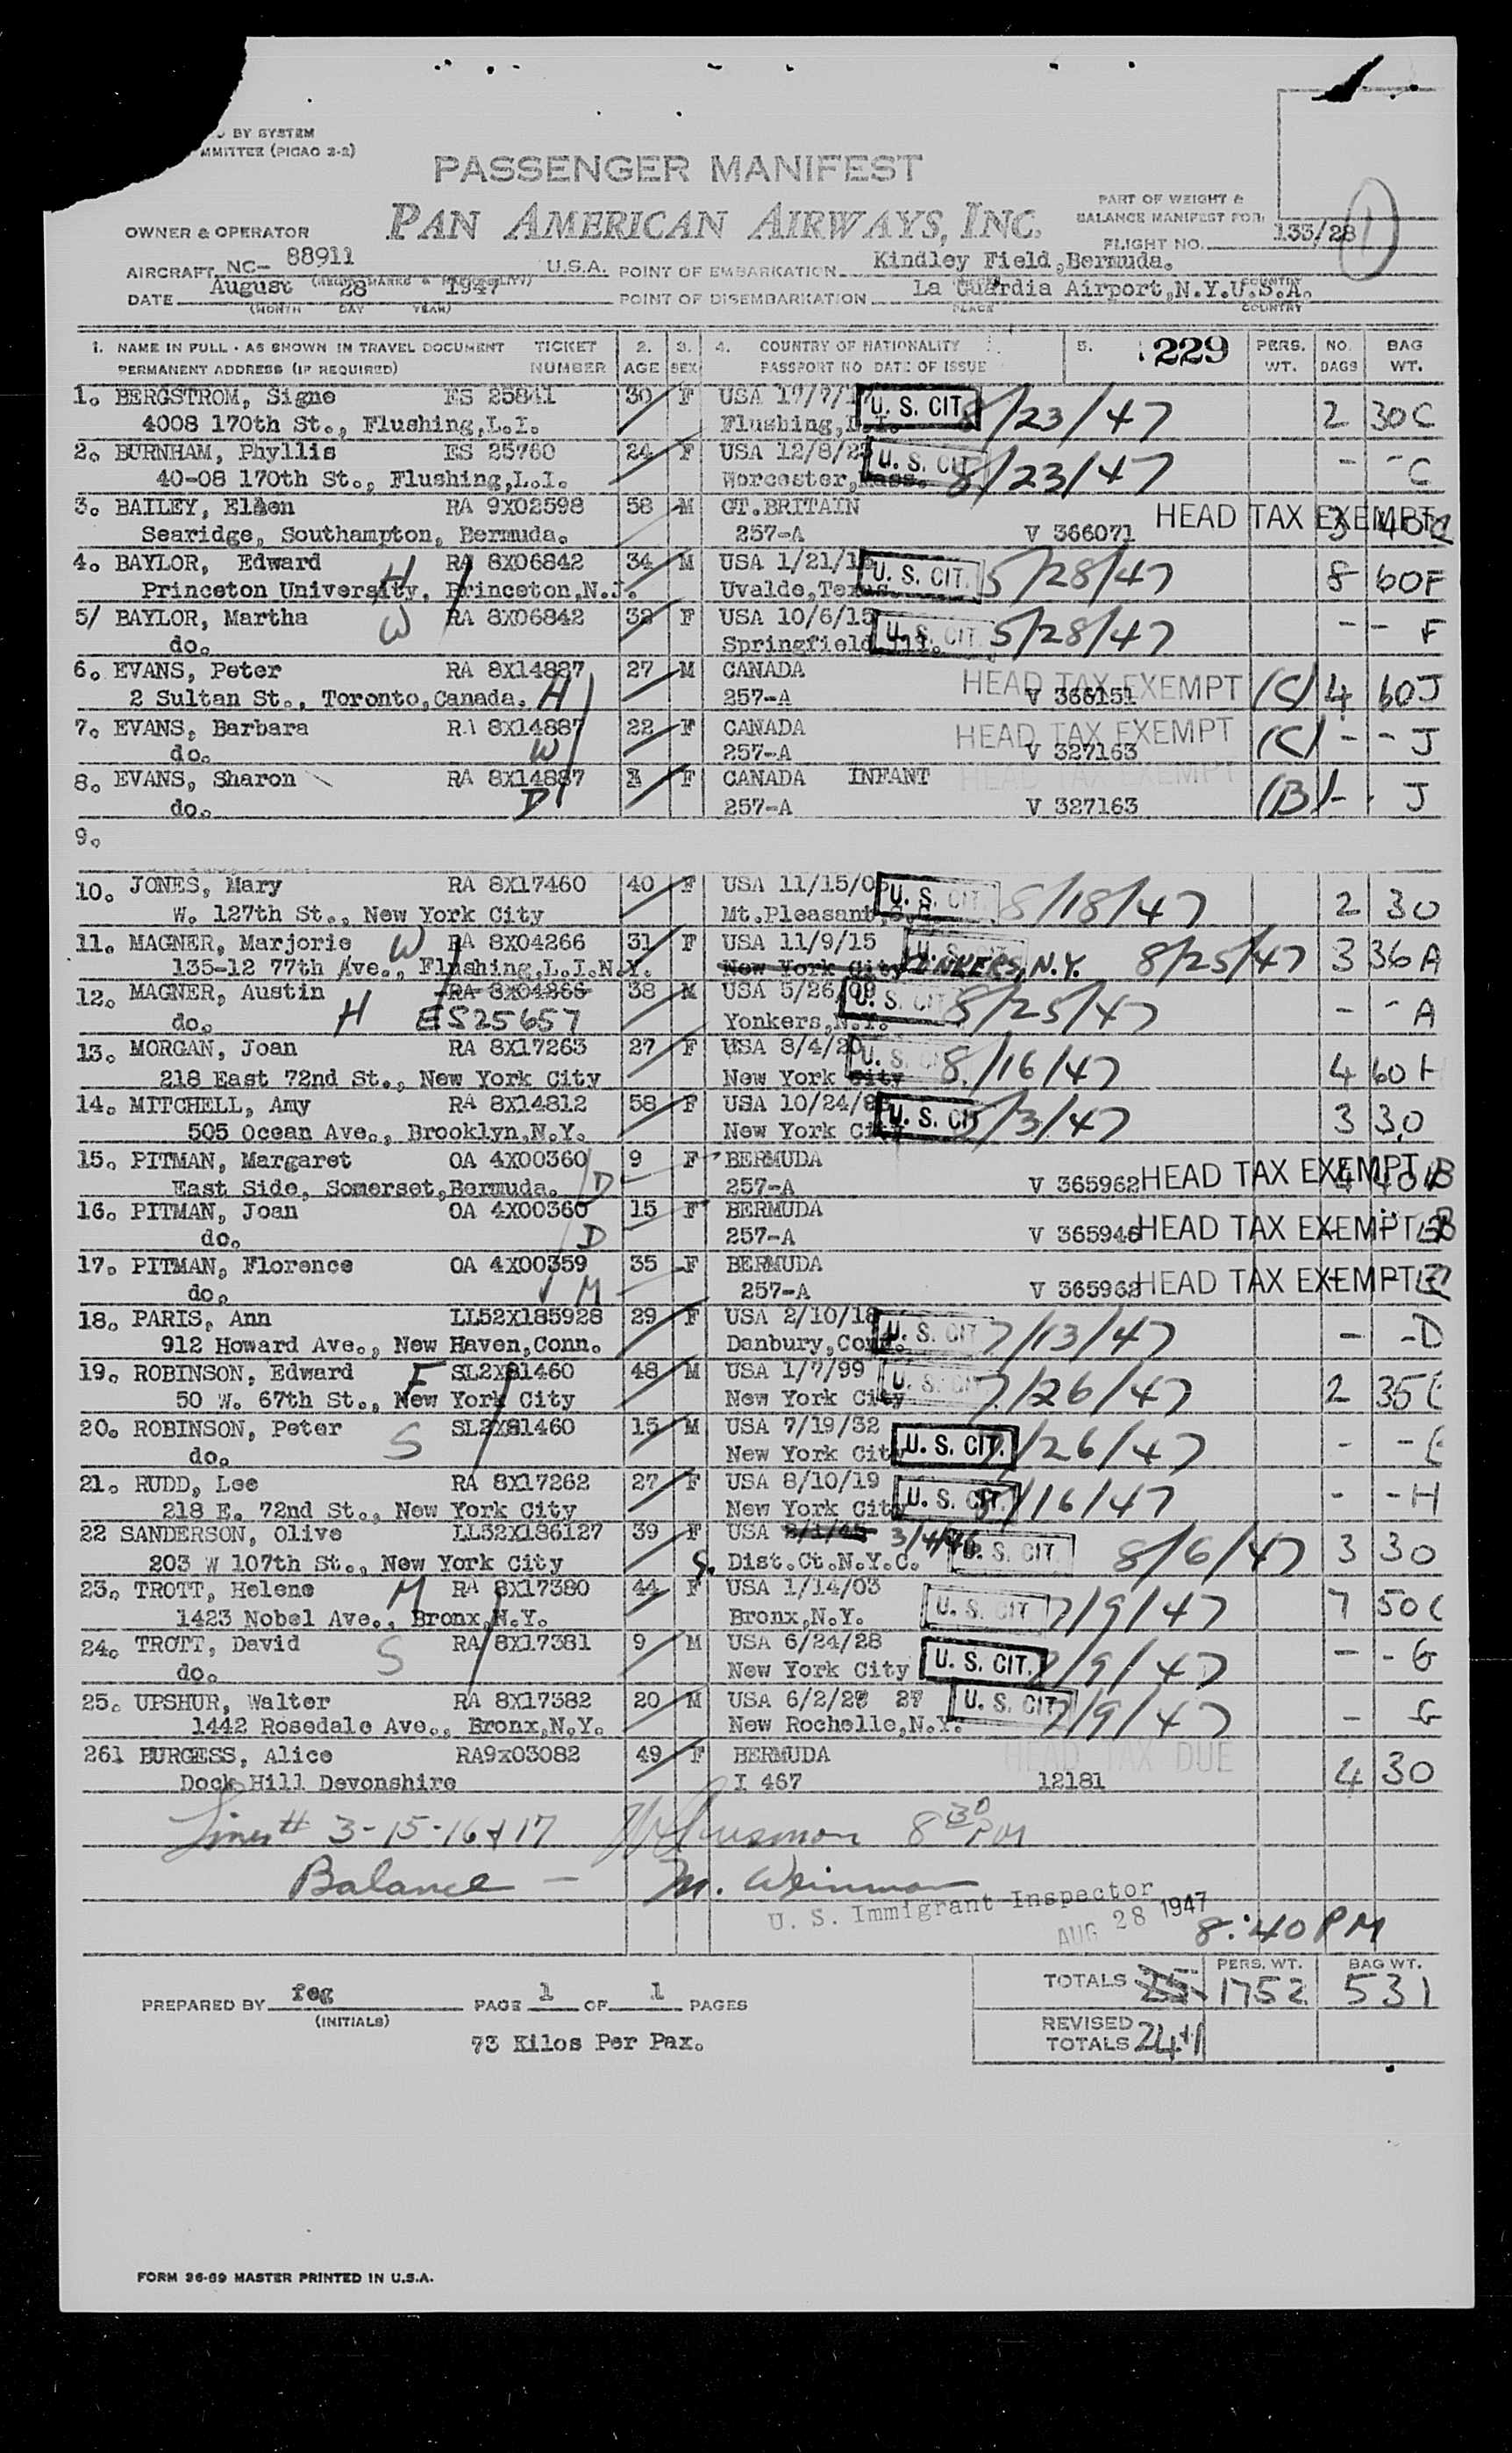 BY SYSTEM
MMITTEE (PICAO 2-2)
PASSENGER MANIFEST
PAN AMERICAN AIRWAYS, INC.
PART OF WEIGHT &
BALANCE MANIFEST FOR:
OWNER & OPERATOR
FLIGHT NO. 133/28 1
AIRCRAFT NC- 88911 U.S.A. POINT OF EMBARKATION Kindley Field, Bermuda.
DATE August 28 1947 POINT OF DISEMBARKATION La Guardia Airport, N.Y.U.S.A.
(MONTH DAY YEAR) PLACE COUNTRY
1. NAME IN FULL - AS SHOWN IN TRAVEL DOCUMENT TICKET 2. 3. 4. COUNTRY OF NATIONALITY 5. 229 PERS. NO. BAG
PERMANENT ADDRESS (IF REQUIRED) NUMBER AGE SEX PASSPORT NO DATE OF ISSUE WT. BAGS WT.
1. BERGSTROM, Signe ES 25841 30 F USA 17/7/17 U. S. CIT. 8/23/47 2 30C
4008 170th St., Flushing, L.I. Flushing, L.I.
2. BURNHAM, Phyllis ES 25760 24 F USA 12/8/2 U. S. CIT. 8/23/47 - - C
40-08 170th St., Flushing, L.I. Worcester, Mass.
3. BAILEY, RA 9X02598 58 M GT.BRITAIN HEAD TAX EXEMPT 3 40
Searidge, Southampton, Bermuda. 257-A V 366071
4. BAYLOR, Edward H RA 8X06842 34 M USA 1/21/13 U. S. CIT. 5/28/47 8 60F
Princeton University, Princeton, N.J. Uvalde, Texas.
5/ BAYLOR, Martha W RA 8X06842 32 F USA 10/6/15 U. S. CIT. 5/28/47 - - F
do. Springfield, Ill.
6. EVANS, Peter RA 8X14887 27 M CANADA HEAD TAX EXEMPT (C) 4 60J
2 Sultan St., Toronto, Canada. H 257-A V 366151
7. EVANS, Barbara RA 8X14887 22 F CANADA HEAD TAX EXEMPT (C) - - J
do. W 257-A V 327163
8. EVANS, Sharon RA 8X14887 F CANADA INFANT HEAD TAX EXEMPT (B) - - J
do. D 257-A V 327163
9.
10. JONES, Mary RA 8X17460 40 F USA 11/15/06 U. S. CIT. 8/18/47 2 30
W. 127th St., New York City Mt.Pleasant,
11. MAGNER, Marjorie W RA 8X04266 31 F USA 11/9/15 U. S. CIT. 8/25/47 3 36 A
135-12 77th Ave., Flushing, L.I.N.Y. New York City YONKERS, N.Y.
12. MAGNER, Austin RA 8X04266 38 M USA 5/26/09 U. S. CIT. 8/25/47 - - A
do. H ES25657 Yonkers, N.Y.
13. MORGAN, Joan RA 8X17263 27 F USA 8/4/20 U. S. CIT. 8/16/47 4 60 H
218 East 72nd St., New York City New York City
14. MITCHELL, Amy RA 8X14812 58 F USA 10/24/88 U. S. CIT. 5/3/47 3 30
505 Ocean Ave., Brooklyn, N.Y. New York City
15. PITMAN, Margaret OA 4X00360 9 F BERMUDA
East Side, Somerset, Bermuda. D 257-A V 365962 HEAD TAX EXEMPT 4 40 B
16. PITMAN, Joan OA 4X00360 15 F BERMUDA
do. D 257-A V 365946 HEAD TAX EXEMPT B
17. PITMAN, Florence OA 4X00359 35 F BERMUDA
do. M 257-A V 365962 HEAD TAX EXEMPT
18. PARIS, Ann LL52X185928 29 F USA 2/10/18 U. S. CIT. 7/13/47 - -D
912 Howard Ave., New Haven, Conn. Danbury, Conn.
19. ROBINSON, Edward F SL2X81460 48 M USA 1/7/99 U. S. CIT. 7/26/47 2 35E
50 W. 67th St., New York City New York City
20. ROBINSON, Peter S SL2X81460 15 M USA 7/19/32 U. S. CIT. 7/26/47 - - E
do. New York City
21. RUDD, Lee RA 8X17262 27 F USA 8/10/19 U. S. CIT. 8/16/47 - -H
218 E. 72nd St., New York City New York City
22 SANDERSON, Olive LL52X186127 39 F USA 3/4/46 U. S. CIT. 8/6/47 3 30
203 W 107th St., New York City S. Dist.Ct.N.Y.C.
23. TROTT, Helene M RA 8X17380 44 F USA 1/14/03 U. S. CIT. 7/9/47 7 50G
1423 Nobel Ave., Bronx, N.Y. Bronx, N.Y.
24. TROTT, David S RA 8X17381 9 M USA 6/24/28 U. S. CIT. 7/9/47 - - G
do. New York City
25. UPSHUR, Walter RA 8X17382 20 M USA 6/2/28 27 U. S. CIT. 7/9/47 - G
1442 Rosedale Ave., Bronx, N.Y. New Rochelle, N.Y.
261 BURGESS, Alice RA9x03082 49 F BERMUDA HEAD TAX DUE 4 30
Dock Hill Devonshire I 467 12181
Lines # 3-15-16 & 17 8 30 PM
Balance - M. Weinman
U. S. Immigrant Inspector
AUG 28 1947 8:40 PM
TOTALS 25 PERS. WT. 1752 BAG WT. 531
PREPARED BY feg PAGE 1 OF 1 PAGES
(INITIALS)
REVISED TOTALS 24+1
73 Kilos Per Pax.
FORM 36-69 MASTER PRINTED IN U.S.A.